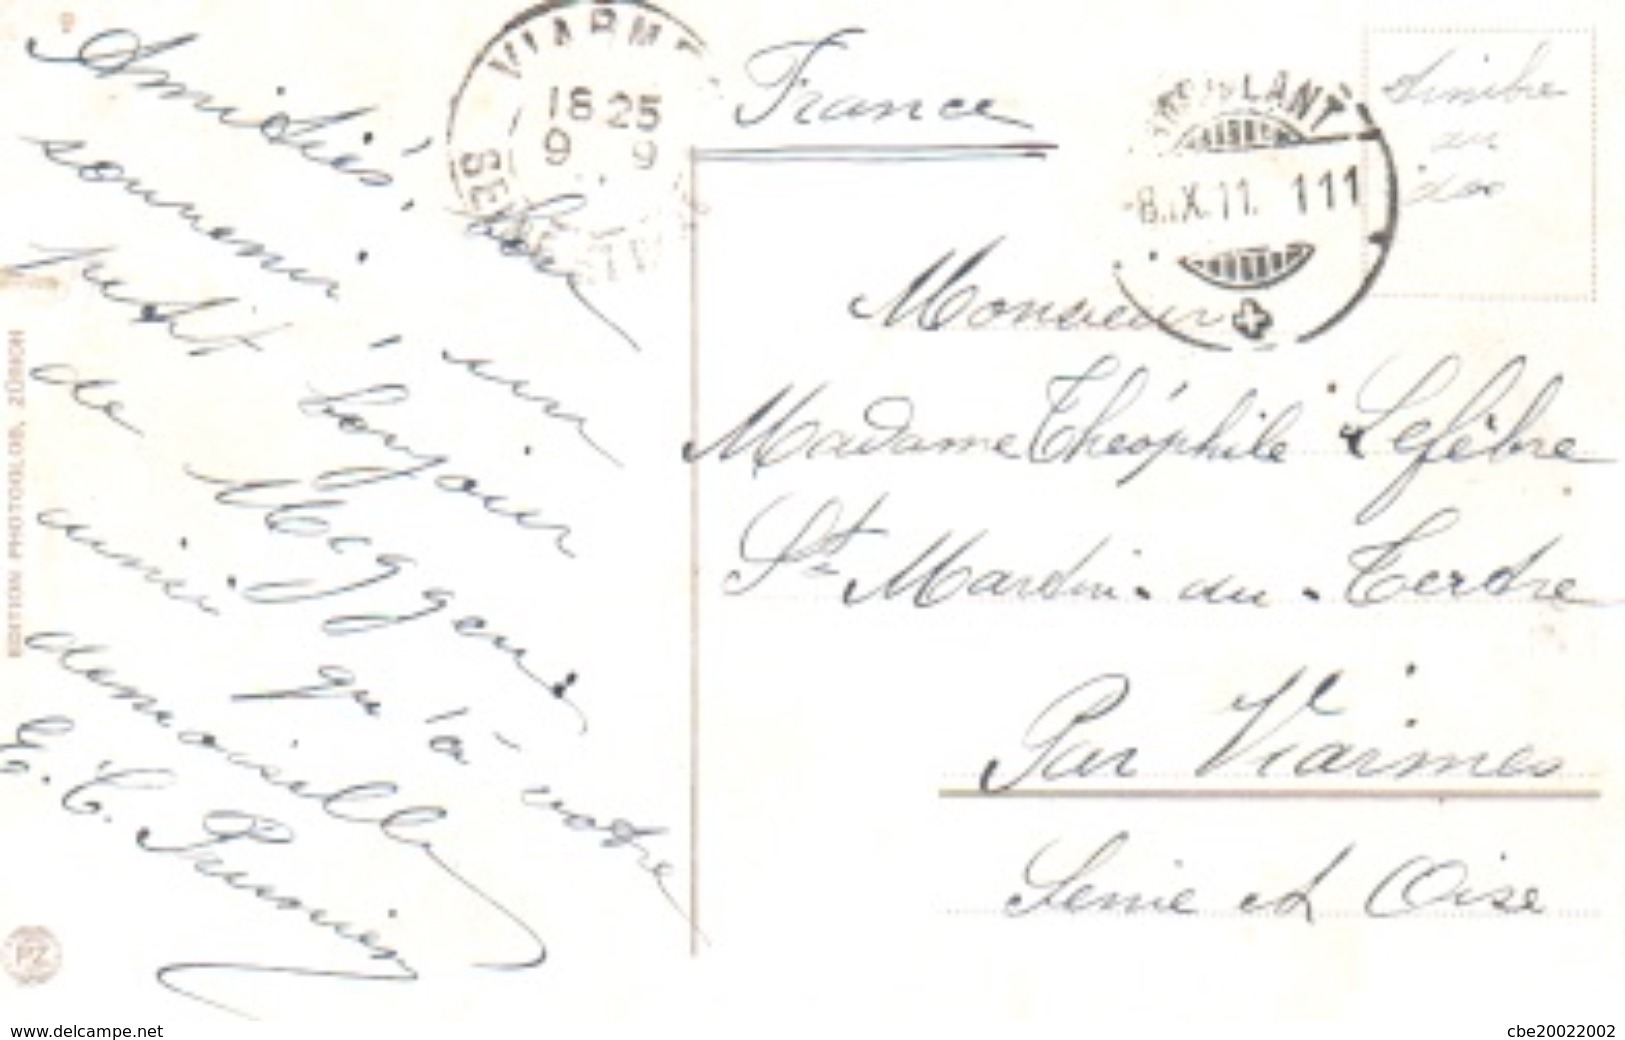 Amitiés, bon
souvenir, un
petit bonjour
de Meggen,
ainsi qu'à votre
demoiselle
E. C. Prunier
EDITION PHOTOGLOB, ZÜRICH
PZ
VIARMES
18 25
9 9
SE
France
AMBULANT
-8.IX.11. 111
timbre
au
dos
Monsieur
Madame Théophile Lefèbre
St Martin-du-Tertre
Par Viarmes
Seine et Oise
www.delcampe.net
cbe20022002